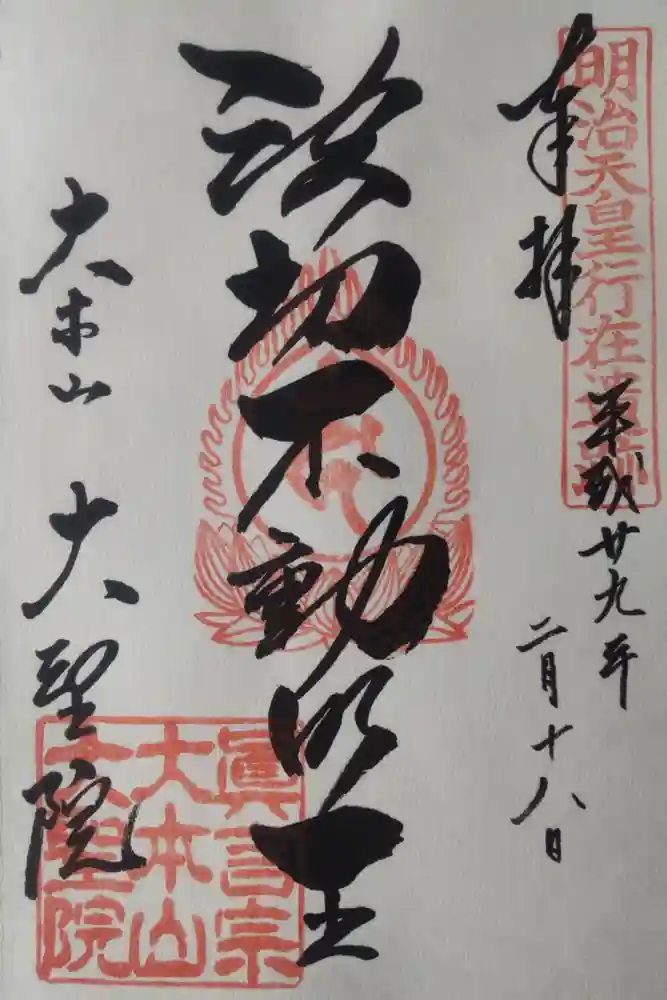 明治天皇行在遺跡
奉拝
平成廿九年
二月十八日
波切不動明王
大本山　大聖院
眞言宗
大本山
大聖院